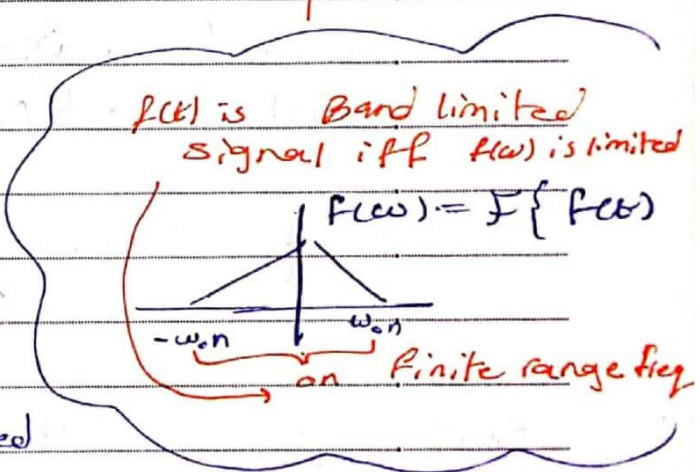 f(t) is Band limited
signal iff f(ω) is limited
F(ω) = F{ f(t)
-ω₀n ω₀n
on finite range freq
ed